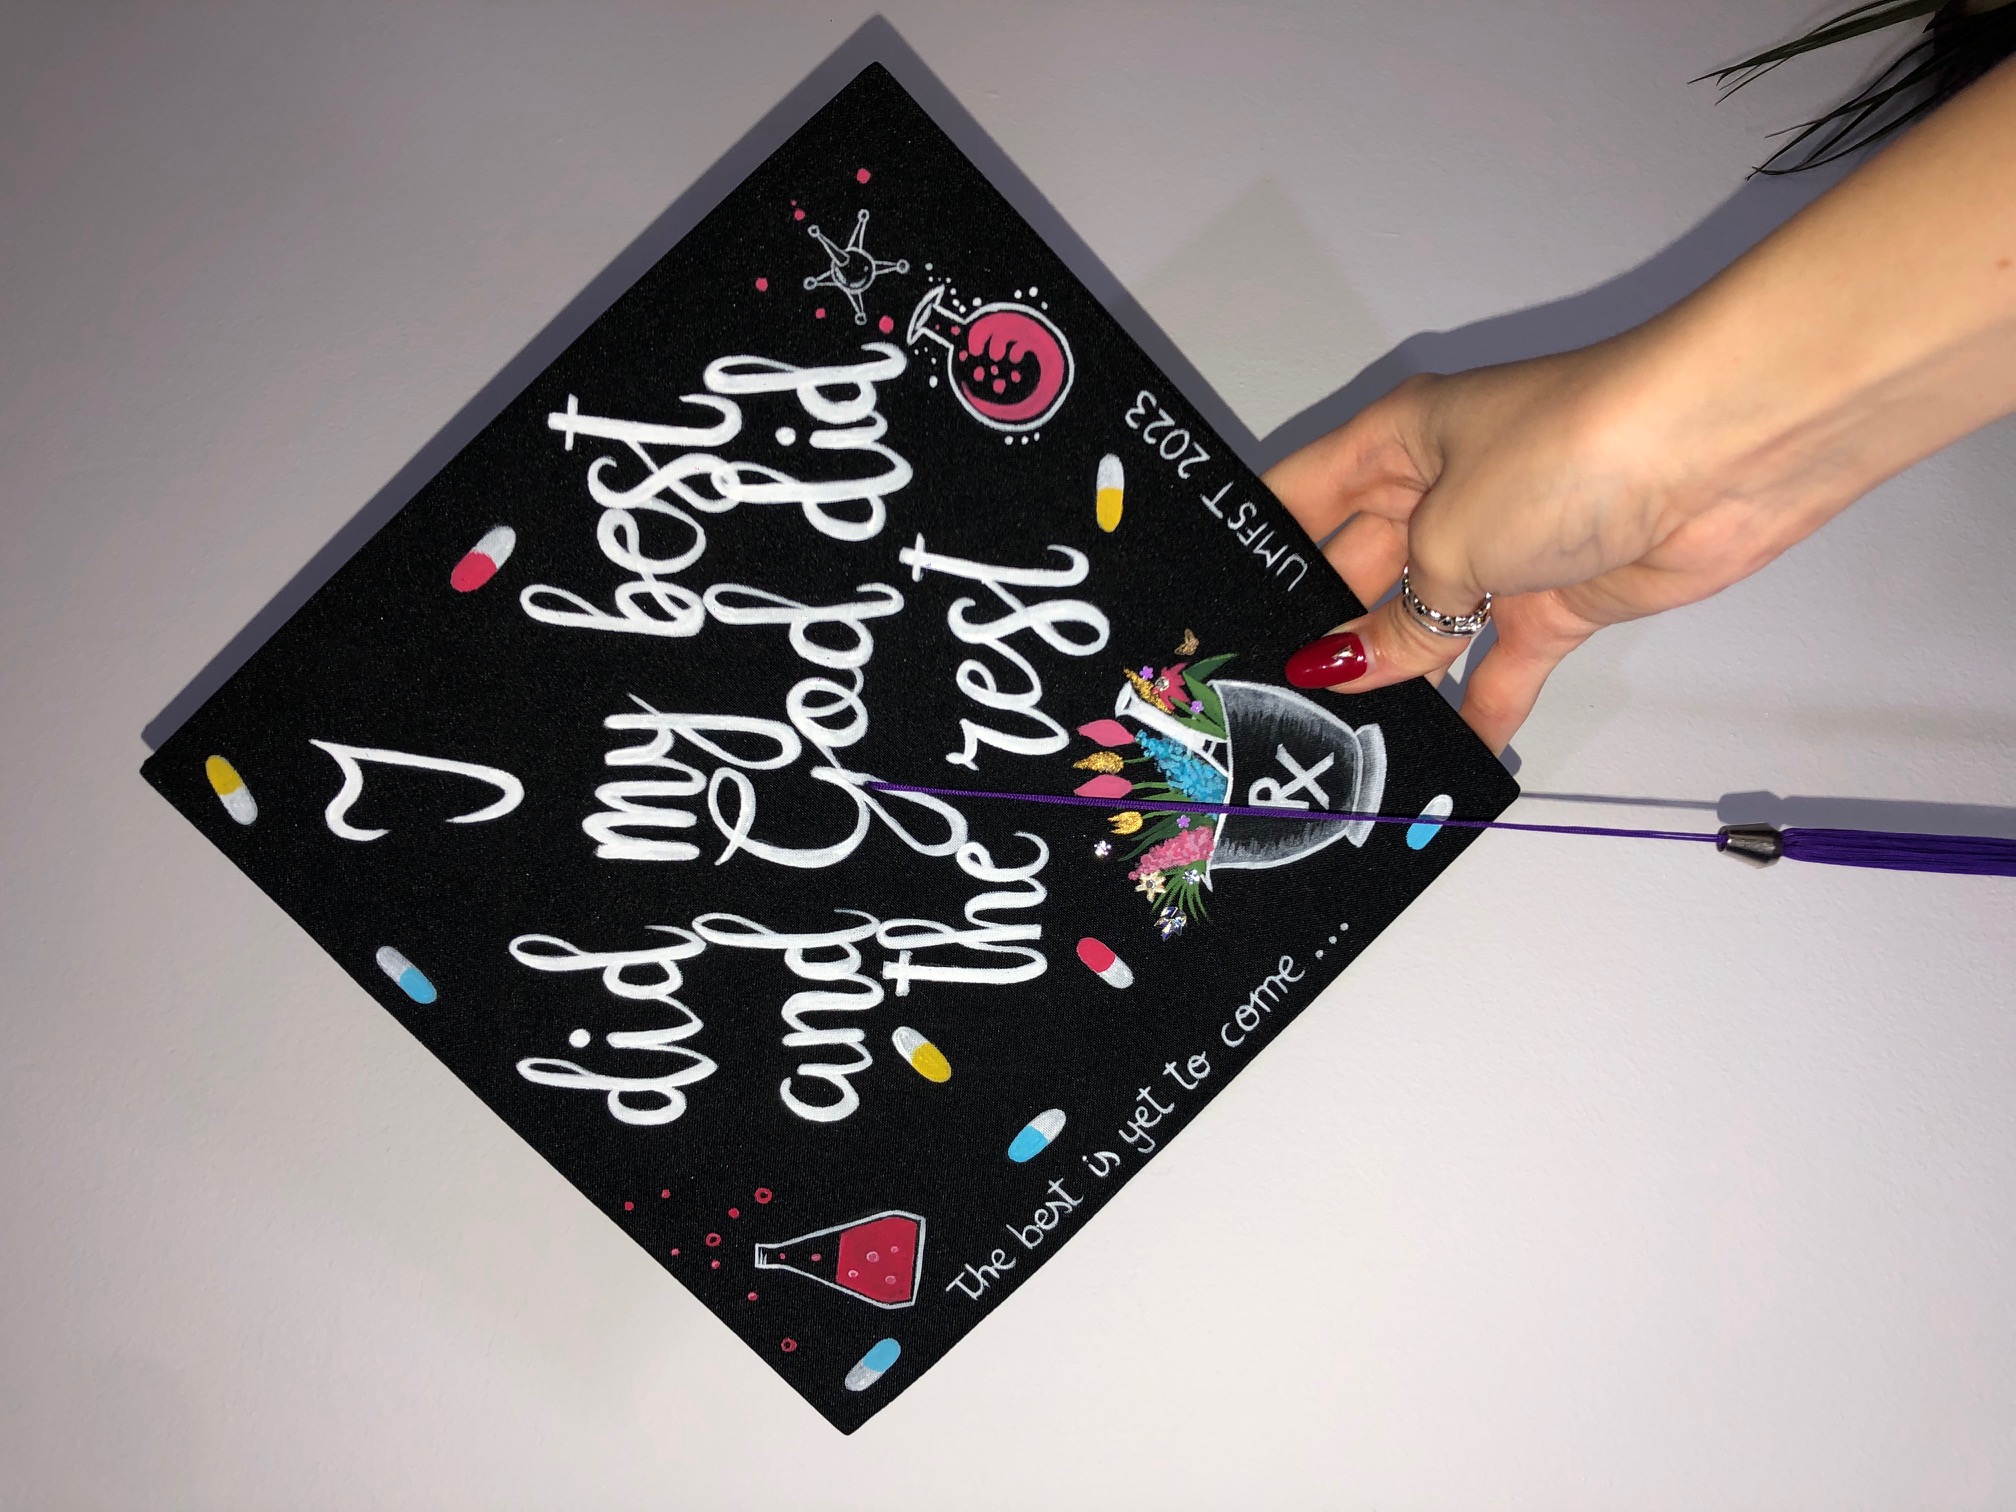 I
did my best
and God did
the rest
The best is yet to come...
UMFST 2023
RX